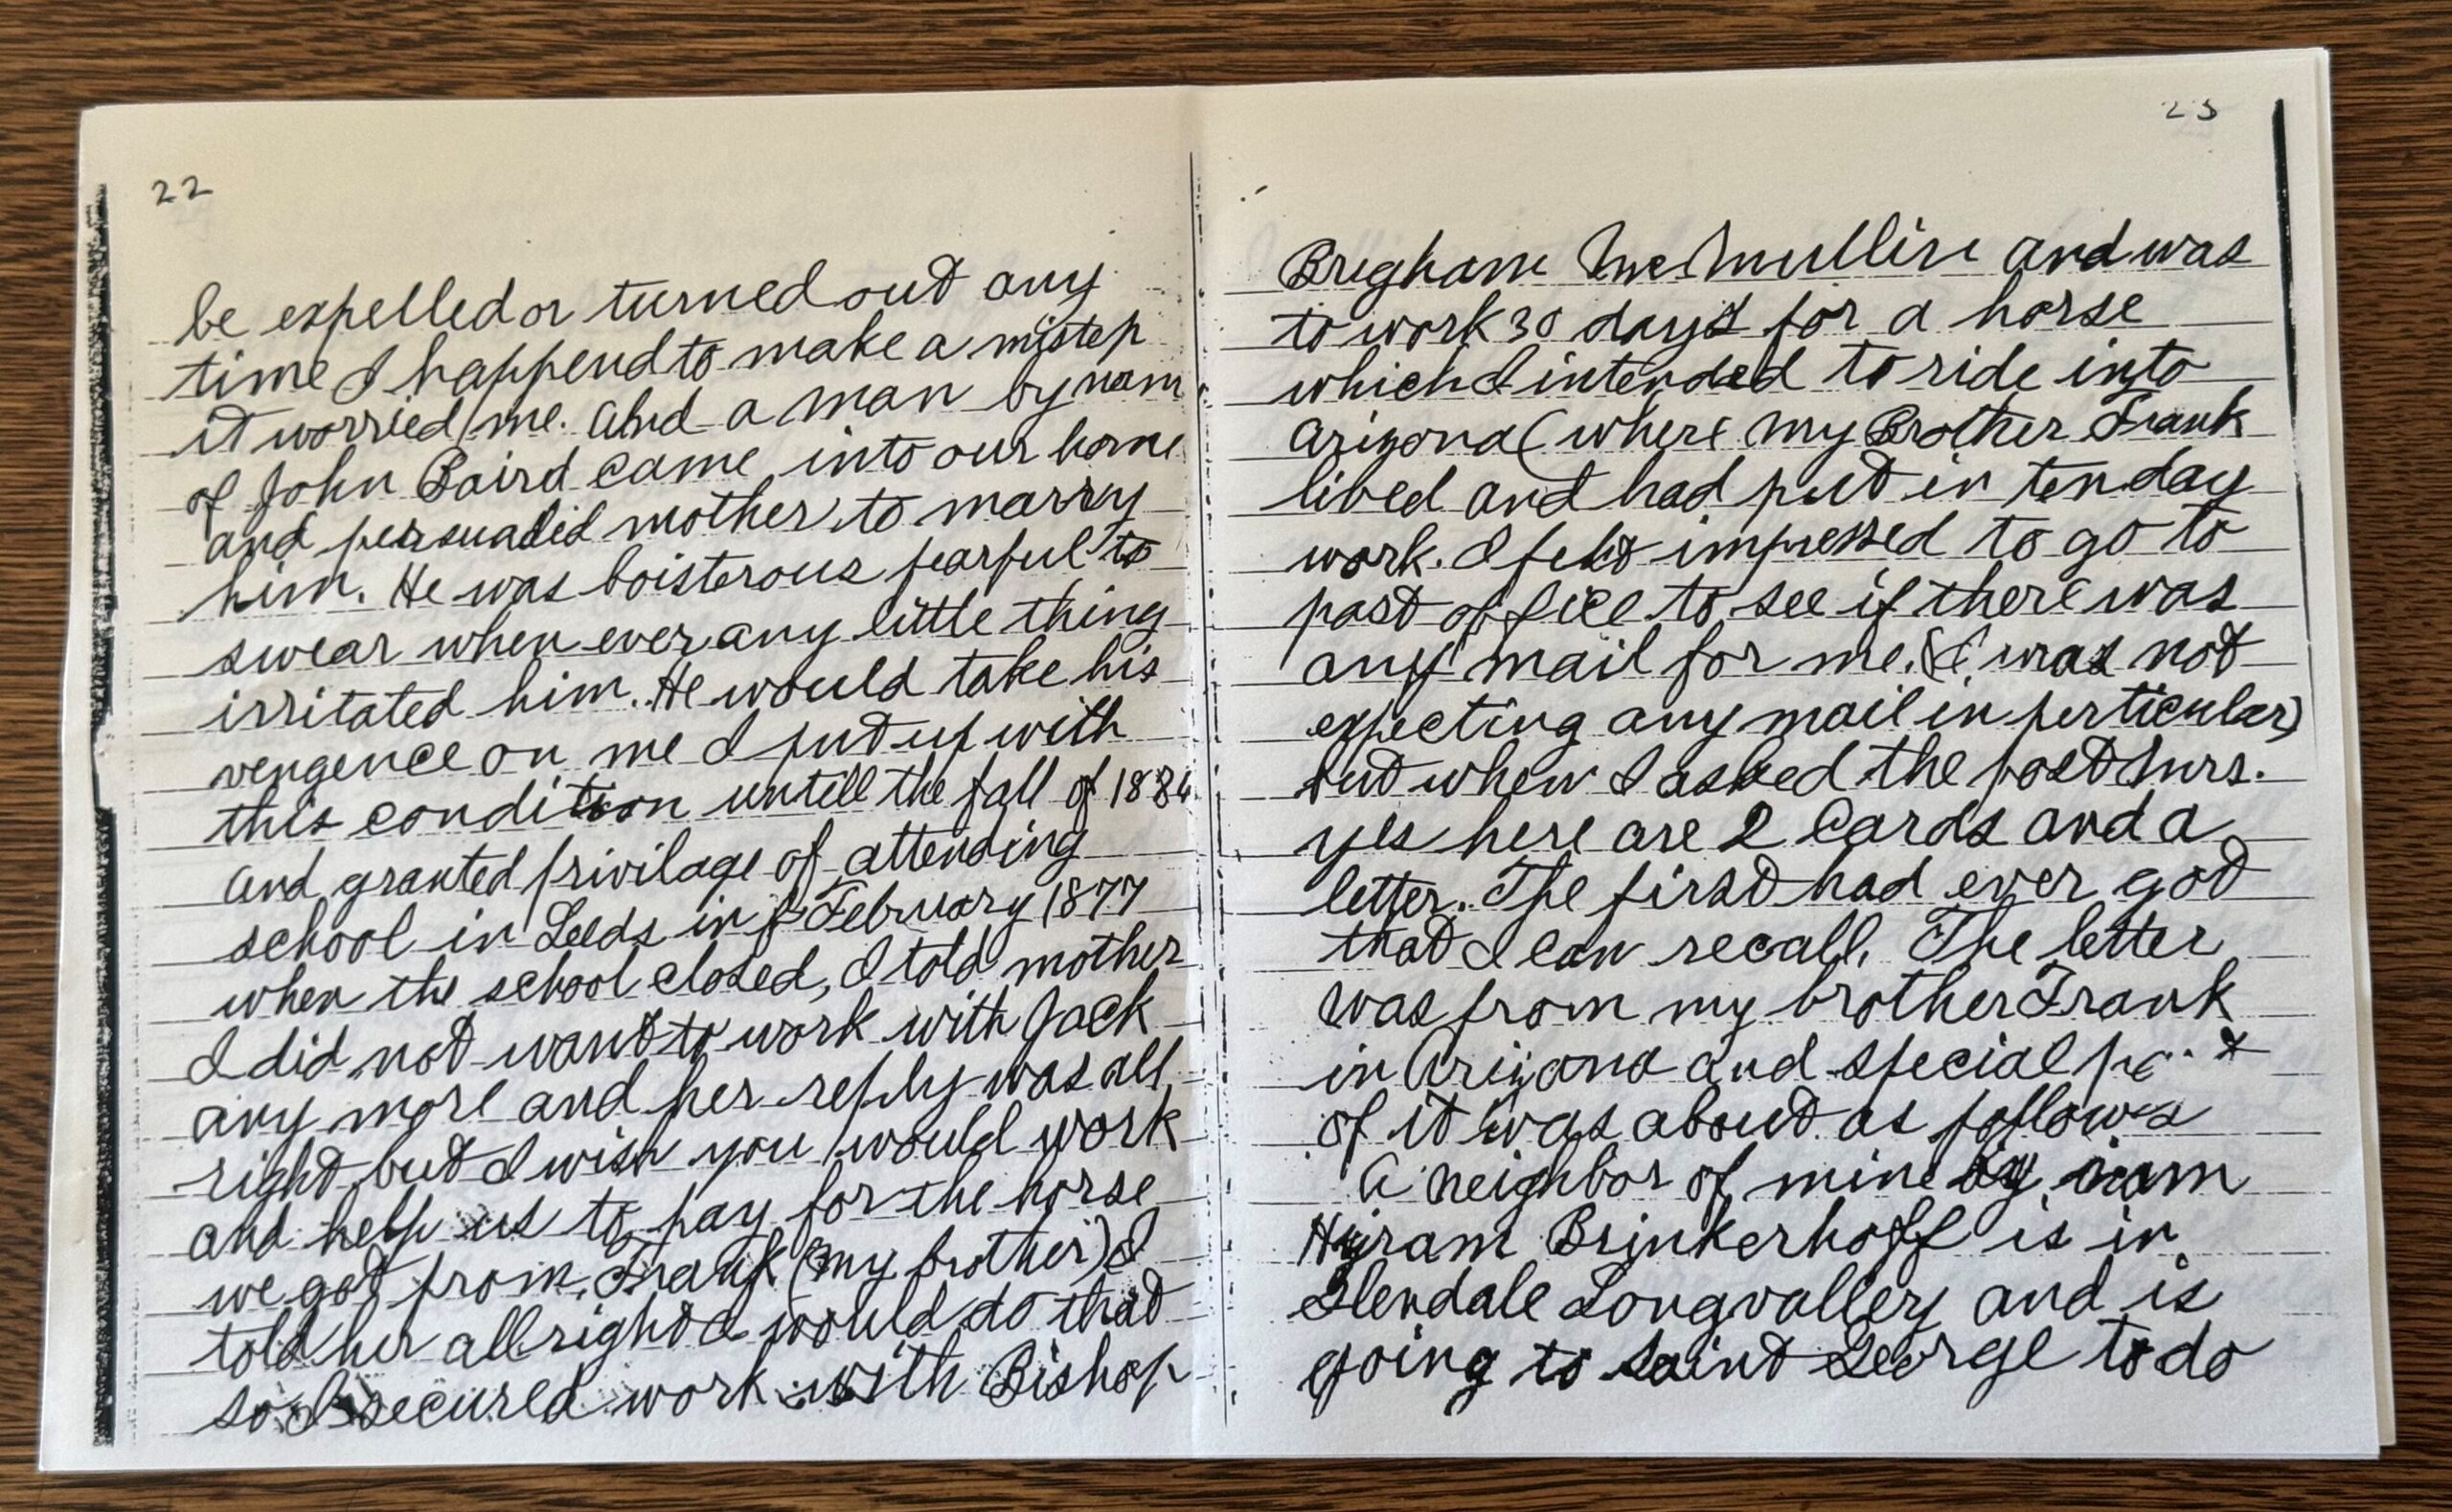 22
be expelled or turned out any
time I happend to make a mistep
it worried me. And a man by nam
of John Baird came into our home
and persuadid mother to marry
him. He was boisterous fearful to
swear when ever any little thing
irritated him. He would take his
vengence on me I put up with
this condition untill the fall of 188
and granted privilage of attending
school in Leeds in February 1877
when the school closed, I told mother
I did not want to work with Jack
any more and her reply was all
right but I wish you would work
and help us to pay for the horse
we got from Frank (my brother) I
told her all right I would do that
so I secured work with Bishop
23
Brigham McMullin and was
to work 30 days for a horse
which I intended to ride into
Arizona (where my Brother Frank
lived and had put in ten day
work. I felt impressed to go to
post office to see if there was
any mail for me. (I was not
expecting any mail in perticular)
but when I asked the post
yes here are 2 Cards and a
letter. The first had ever got
that I can recall. The letter
was from my brother Frank
in Arizona and special
of it was about as follows
A neighbor of mine by nam
Hyram Brinkerhoff is in
Glendale Longvalley and is
going to Saint George to do